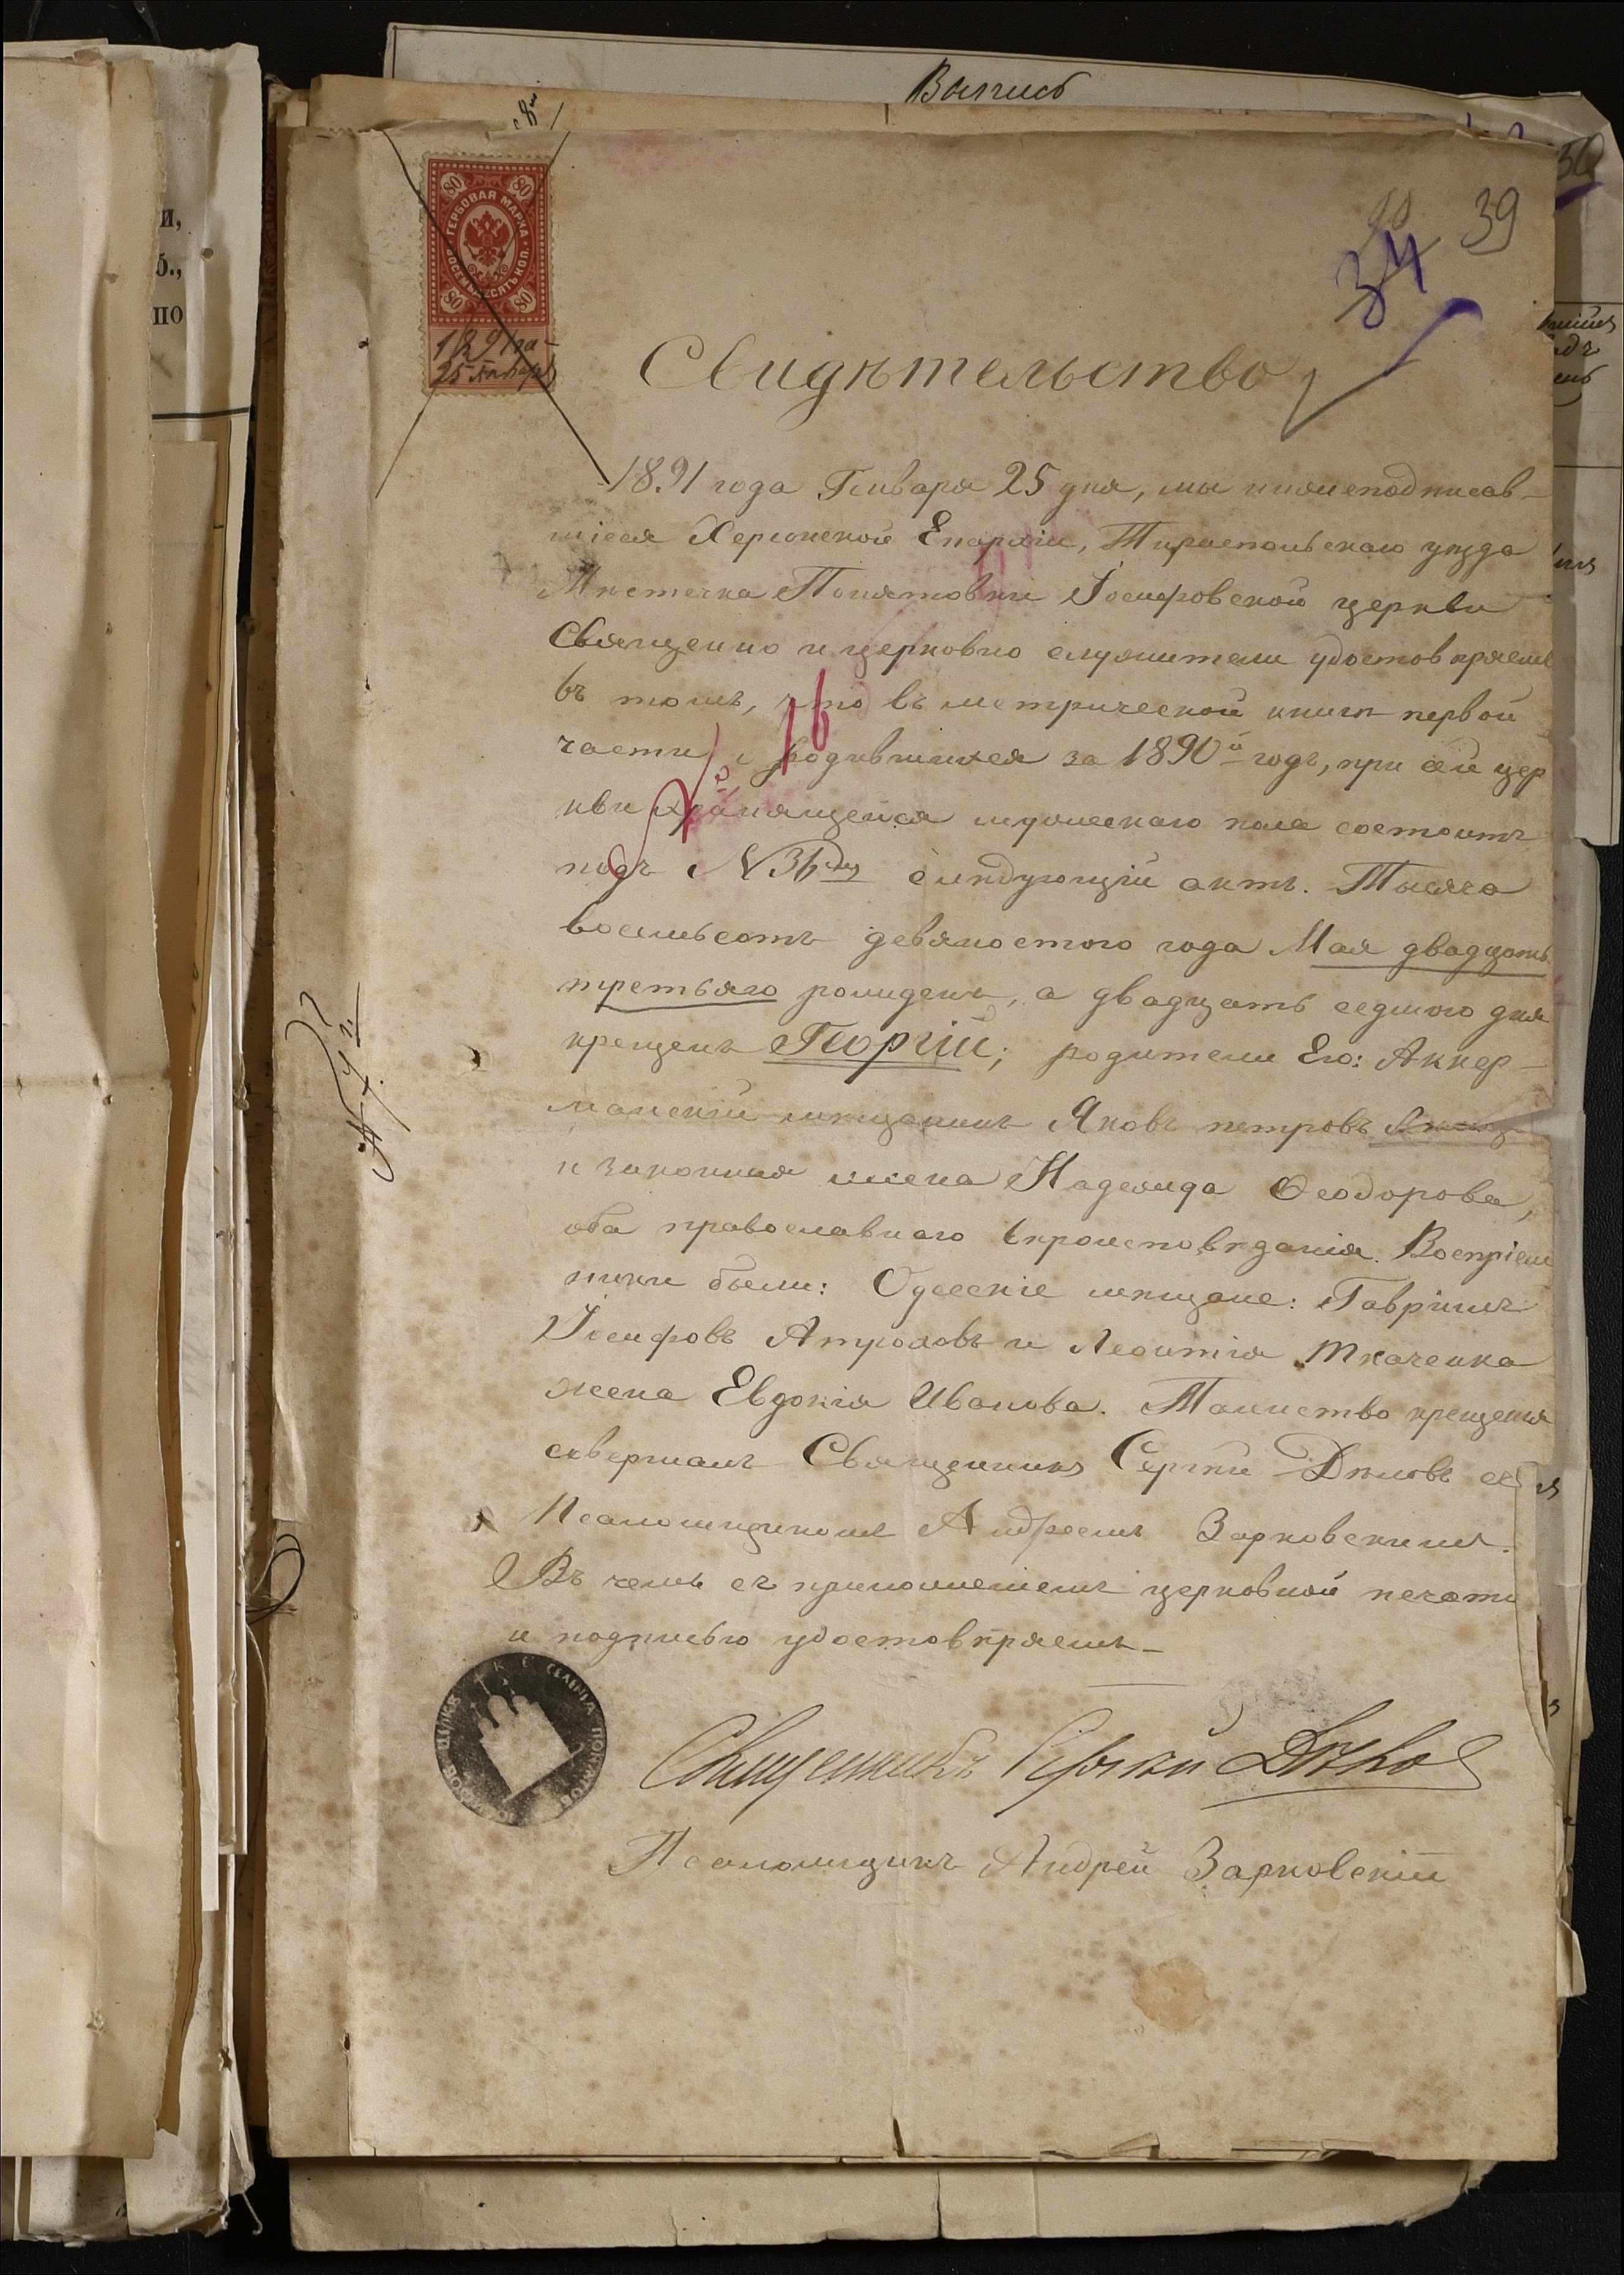 Выпись
39
34
ГЕРБОВАЯ МАРКА
ВОСЕМЬДЕСЯТЪ КОП.
80 80
80 80
1891 га
25 Января
Свидѣтельство
1891 года Генваря 25 дня, мы нижеподписав-
шіеся Херсонской Епархіи, Тираспольскаго уѣзда
Мѣстечка Понятовки Іосифовской церкви
Священно и церковно служители удостовѣряемъ
въ томъ, что въ метрической книгѣ первой
части, о родившихся за 1890й годъ, при сей цер
кви хранящейся мужескаго пола состоитъ
подъ № слѣдующій актъ. Тысяча
восемьсотъ девяностого года Мая двадцать
третьяго рожденъ, а двадцать седмого дня
крещенъ Георгій; родители Его: Аккер-
манскій мѣщанинъ Яковъ петровъ
и законная жена Надежда Ѳеодорова,
оба православнаго вѣроисповѣданія. Воспріем
ники были: Одесскіе мѣщане: Гавріилъ
Іосифовъ и Леонтія Ткаченка
жена Евдокія Иванова. Таинство крещенія
совершалъ Священникъ Сергій Дѣловъ съ
Псаломщикомъ Андреемъ Зарковскимъ.
Въ чемъ съ приложеніемъ церковной печати
и подписью удостовѣряемъ-
Священникъ Сергій Дѣловъ
Псаломщикъ Андрей Зарковскій